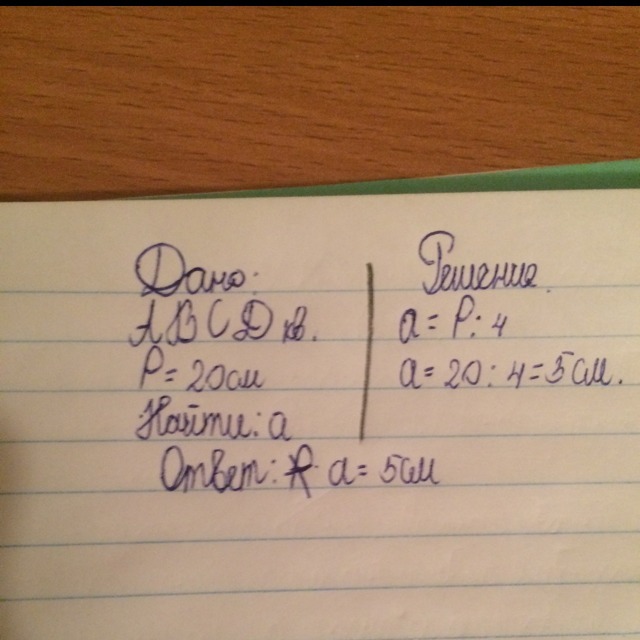 Дано:
ABCD кв.
P = 20см
Найти: a
Решение.
a = P : 4
a = 20 : 4 = 5 см.
Ответ: a = 5см